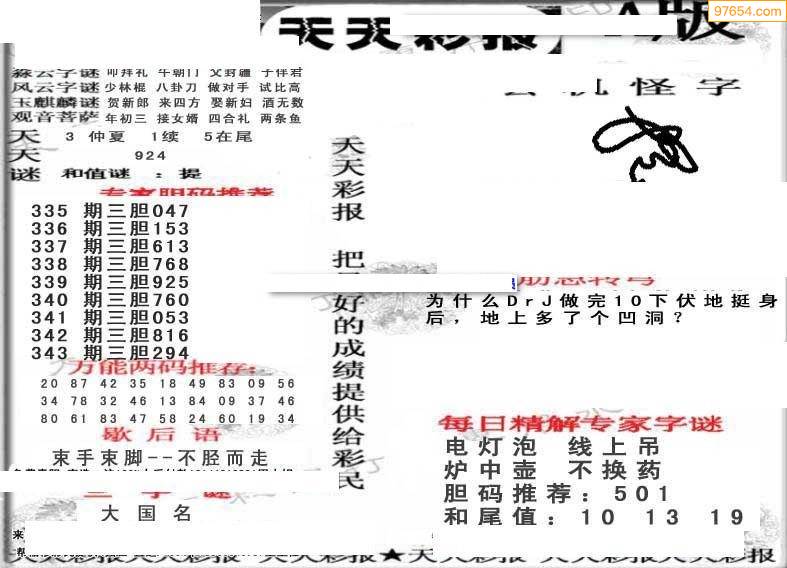 天天彩报
97654.com
森云字谜 叩拜礼 午朝门 父封疆 子伴君
风云字谜 少林棍 八卦刀 做对手 试比高
玉麒麟谜 贺新郎 来四方 娶新妇 酒无数
观音菩萨 年初三 接女婿 四合礼 两条鱼
天 3 仲夏 1续 5在尾
天 924
谜 和值谜 : 提
专家胆码推荐
335 期三胆047
336 期三胆153
337 期三胆613
338 期三胆768
339 期三胆925
340 期三胆760
341 期三胆053
342 期三胆816
343 期三胆294
万能两码推荐:
20 87 42 35 18 49 83 09 56
34 78 32 46 13 84 09 37 46
80 61 83 47 58 24 60 19 34
歇后语
束手束脚--不胫而走
三字谜
大国名
天天彩报 把 好的成绩提供给彩民
怪字
为什么DrJ做完10下伏地挺身
后，地上多了个凹洞？
每日精解专家字谜
电灯泡 线上吊
炉中壶 不换药
胆码推荐: 501
和尾值: 10 13 19
天天彩报★天天彩报 天天彩报 天天彩报